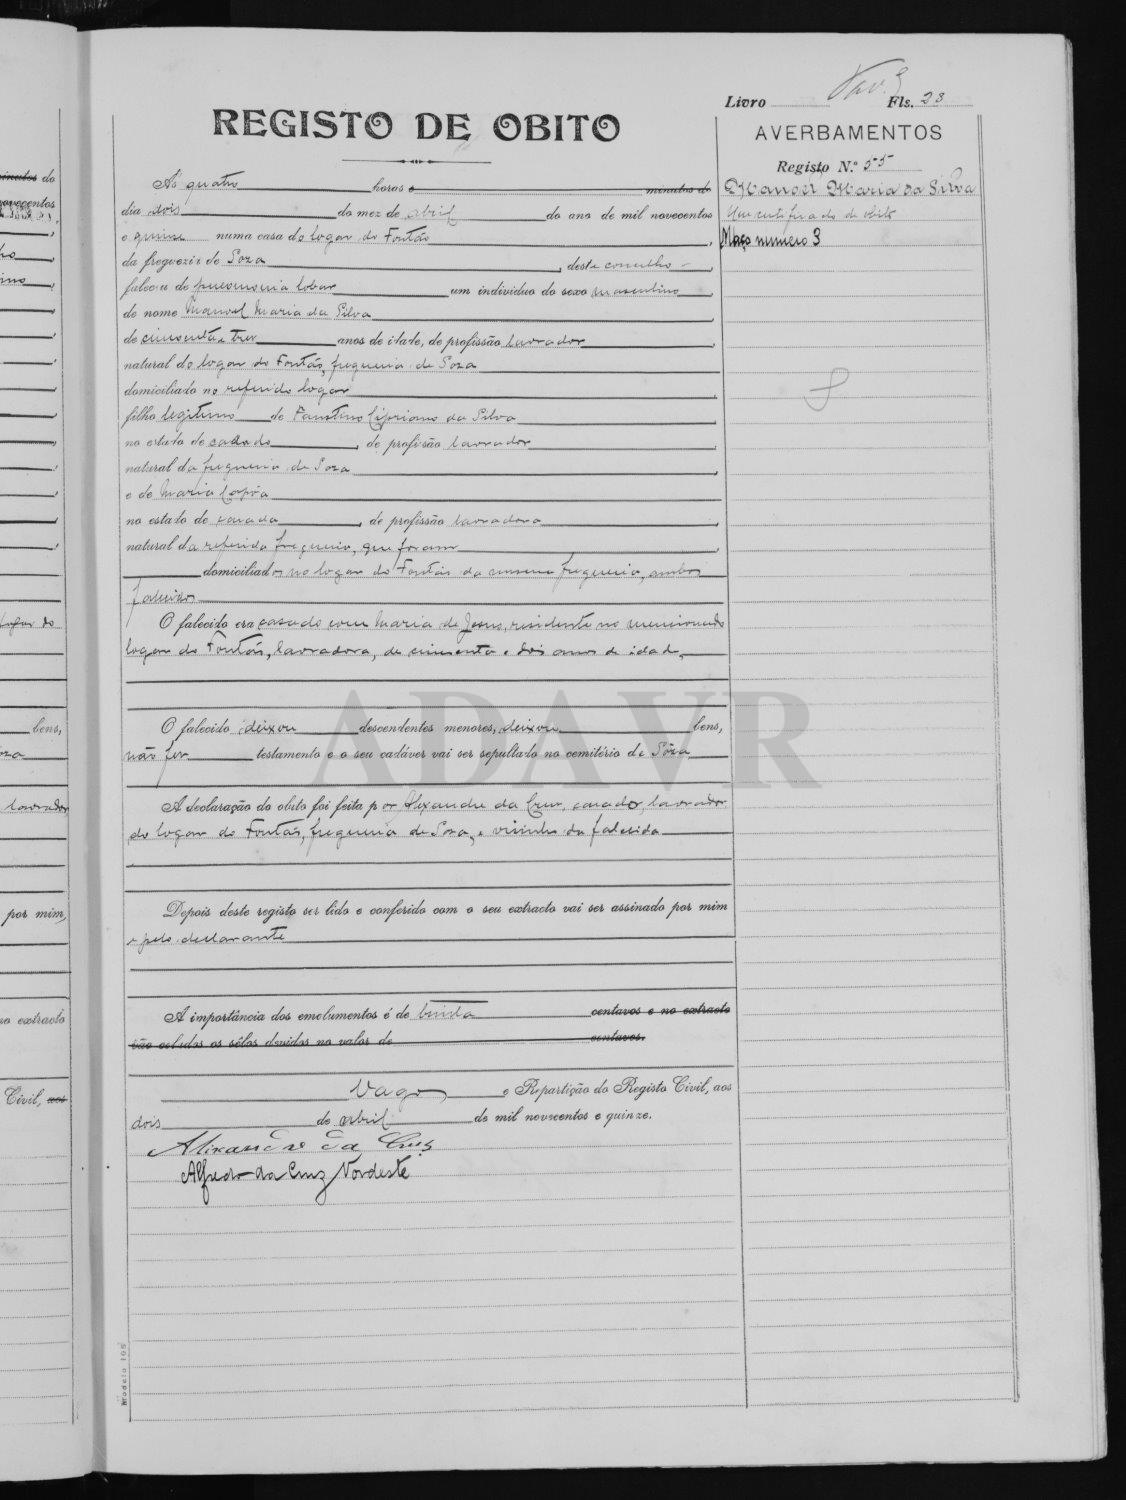 Livro Fls. 28
REGISTO DE OBITO
AVERBAMENTOS
Registo N.º 55
Manoel Maria da Silva
Um certificado de obito
Maço numero 3
Ás quatro horas e minutos do
dia dois do mez de abril do ano de mil novecentos
e quinze numa casa do logar do Fontão
da freguezia de Soza, deste concelho
faleceu de pneumonia lobar um individuo do sexo masculino
de nome Manoel Maria da Silva
de cincoenta e trez anos de idade, de profissão lavrador
natural do logar do Fontão, freguezia de Soza
domiciliado no referido logar
filho legitimo de Faustino Cipriano da Silva
no estado de casado, de profissão lavrador
natural da freguezia de Soza
e de Maria
no estado de casada, de profissão lavradora
natural da referida freguezia, que foram
domiciliados no logar do Fontão da mesma freguezia, ambos
falecidos
O falecido era casado com Maria de Jesus, residente no mencionado
logar do Fontão, lavradora, de cincoenta e dois anos de idade,
O falecido deixou descendentes menores, deixou bens,
não fez testamento e o seu cadáver vai ser sepultado no cemitério de Sôza
A declaração do obito foi feita por Alexandre da Cruz, casado, lavrador
do logar do Fontão, freguezia de Soza, e visinho da falecida
Depois deste registo ser lido e conferido com o seu extracto vai ser assinado por mim
e pelo declarante
A importância dos emolumentos é de trinta centavos e no extracto
vão colados os sêlos devidos no valor de centavos.
Vagos e Repartição do Registo Civil, aos
dois de abril de mil novecentos e quinze.
Alixandre da Cruz
Alfredo da Cruz Nordeste
Modelo 105
ADAVR
minutos do
novecentos
bens,
lavrador
por mim,
no extracto
Civil, aos